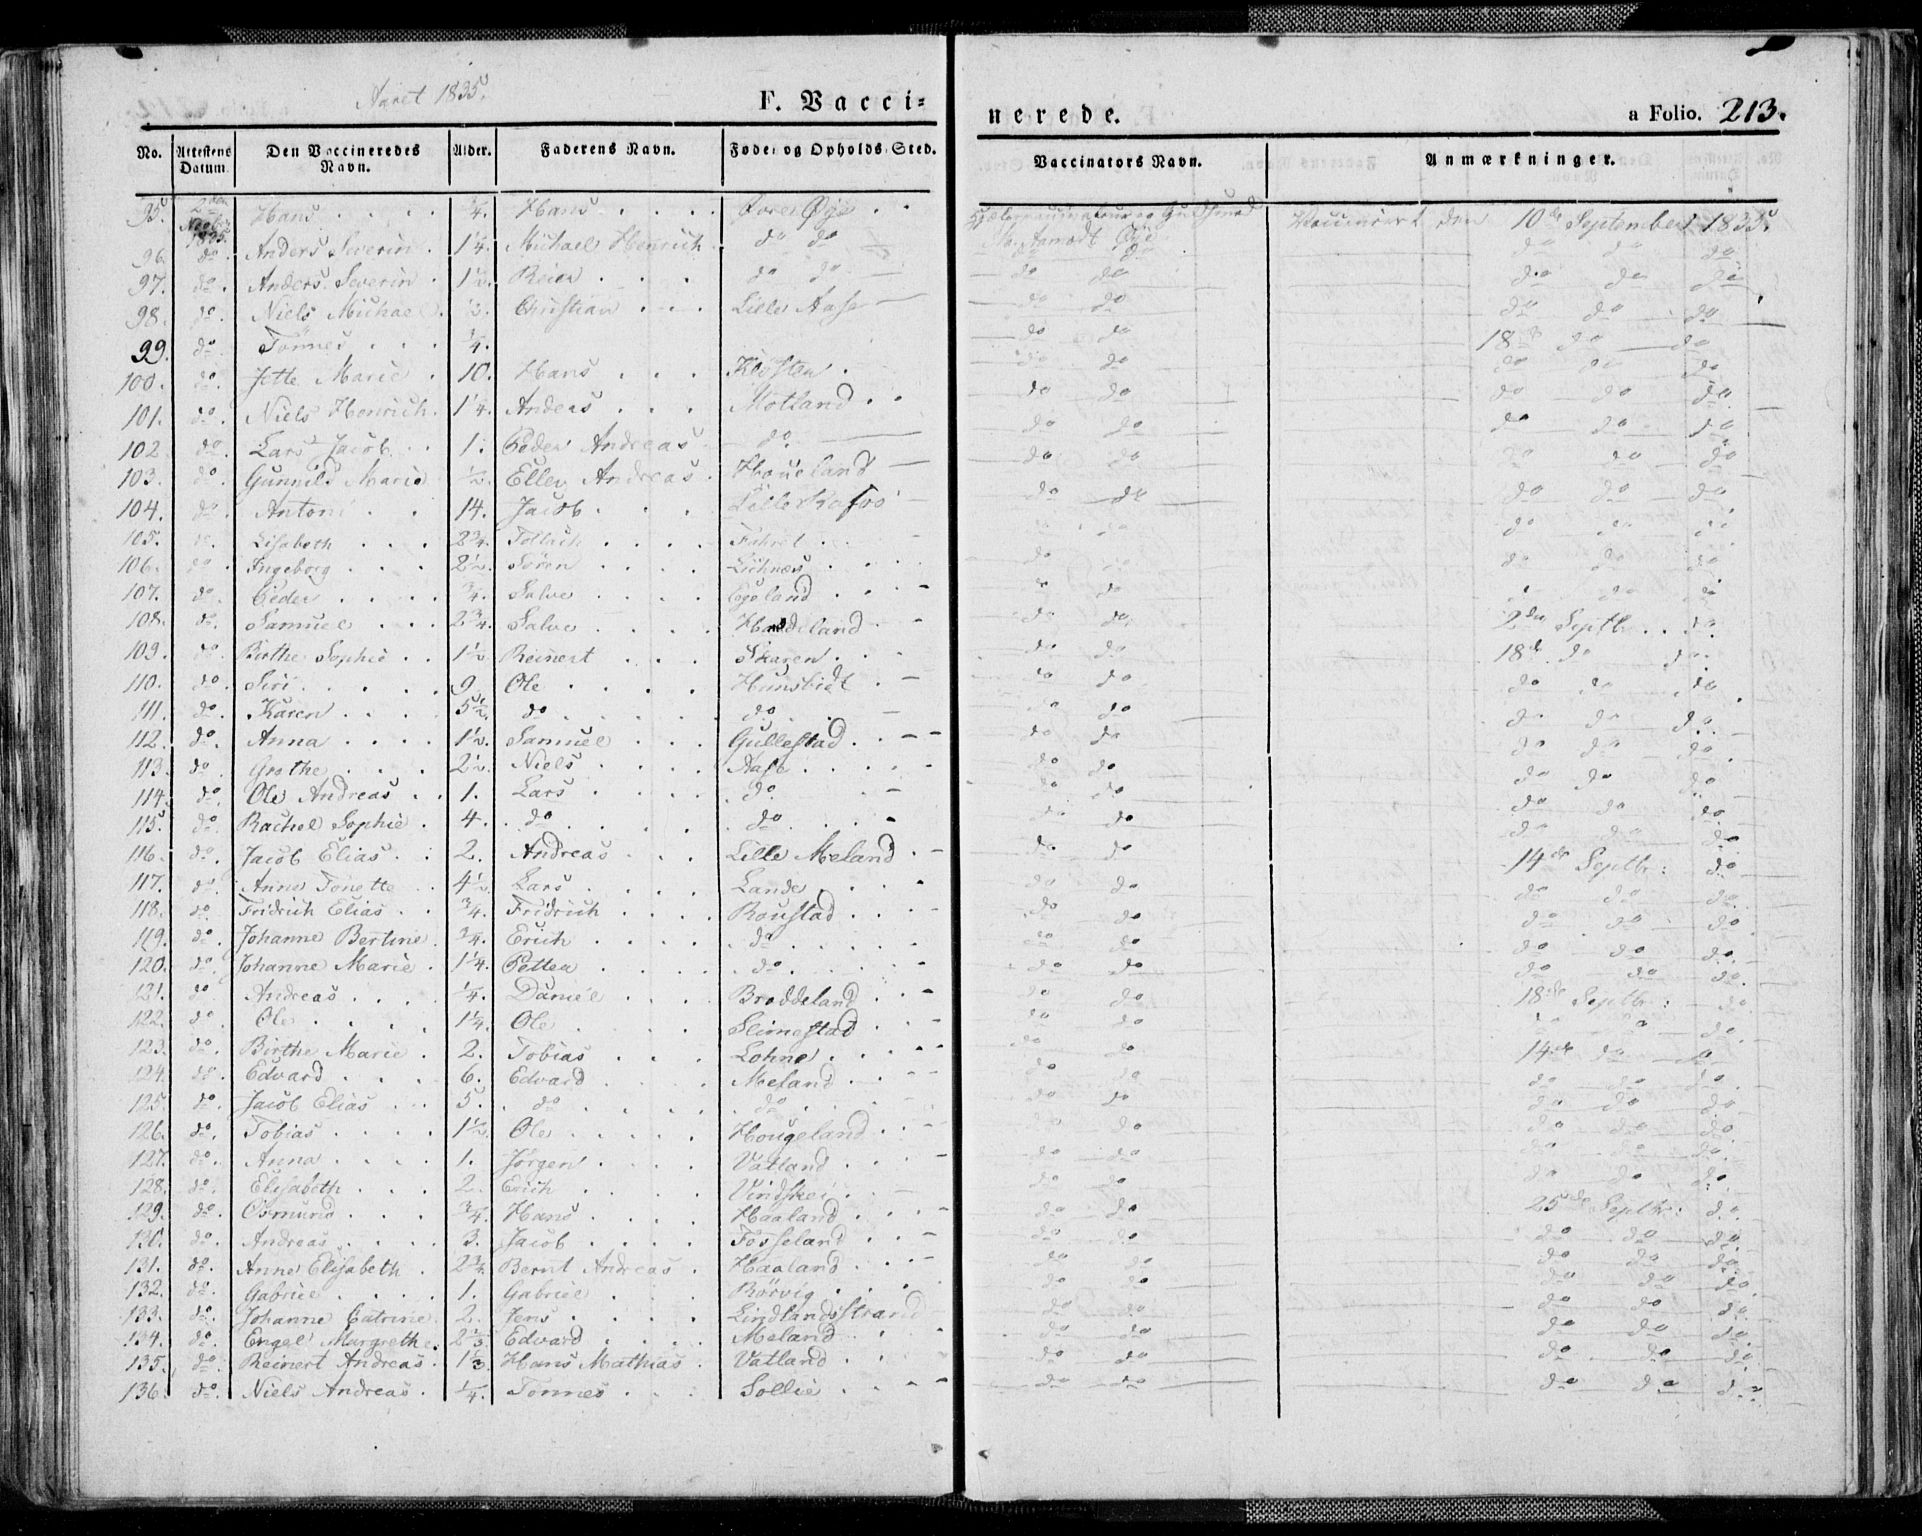 Aaret 1835.
F. Vacci=
nerede.
a Folio. 213.
No. Attestens Datum. Den Vaccineredes Navn. Alder. Faderens Navn. Føde= og Opholds=Sted. Vaccinators Navn. Anmærkninger.
95. 2den 1835. Hans 3/4. Hans Øye Vaccineret den 10de September 1835.
96. do. Anders Severin. 1 1/4. Michael Henrich do do do do do do do
97. do. Anders Severin. 1 1/2. Reier do do do do do do do
98. do. Niels Michael. 1/2. Christian Lille Aase do do do do do
99. do Tønnes 3/4. do do 18de do do
100. do. Jette Marie 10. Hans do do do do do
101. do. Niels Henrich. 1 1/4. Andeas Motland do do do do do
102. do. Lars Jacob 1. Peder Andreas do do do do do do
103. do. Gunnild Marie 1/2. Ellev Andreas. Houeland do do do do do
104. do. Antoni 14. Jacob do do do do do
105. Lisabeth 2 3/4. Tollach do do do
106. do. Ingeborg 2 1/2. Søren do do do do
107. do. Peder 3/4. Salve do do do do
108. do. Samuel 2 3/4. Salve do do 2den Septbr. do
109. do. Birthe Sophie 1 1/2 Reinert Skaren do do 18de do do
110. do. Siri 9. Ole Hunsbedt do do do do do
111. do. Karen 5 1/2. do do. do do do do do.
112. do. Anna 1 1/2. Samuel Gullestad do do do do do.
113. do Grethe 2 1/2. Niels Aase do do do do do
114. do. Ole Andreas 1. Lars do. do do do do do.
115. do. Rachel Sophie 4. do do do do do do do.
116. do. Jacob Elias 2. Andreas Lille Meland do do 14de Septbr: do
117. do. Anne Tonette 4 1/2. Lars Lande do do do do do.
118. do. Fridrich Elias 3/4. Fridrich Roustad do do do do do.
119. do. Johanne Bertine. 3/4. Erich do do do do do do.
120. do. Johanne Marie 1 1/4. Petter do do do do do do.
121. do Andreas 1/4. Daniel Broddeland do do 18de Septbr: do
122. do. Ole 1 1/4. Ole Slimestad do do do.
123. do. Birthe Marie 2. Tobias Lohne do do 14de do do
124. do. Edvard 6. Edvard Meland do do do do do.
125. do. Jacob Elias 5. do do do do do do do.
126. do. Tobias 1 1/2. Ole Hougeland do do do do do
127. do. Anna 1. Jørgen Vatland do do do do do
128. do. Elisabeth 2. Erich Vindskei do do do do do.
129. do. Osmund 3/4. Hans Haaland do do 25de Septbr: do.
130. do. Andreas 3. Jacob Fosseland do do do do do.
131. do. Anne Elisabeth 2 3/4. Bernt Andreas Haaland do do do do do.
132. do. Gabriel 1. Gabriel Rørvig do do do do do.
133. do. Johanne Catrine. 2. Jens Lindlandsstrand do do do do do.
134. do. Engel Margrethe. 2 2/3. Edvard Meland do do do do do.
135. do Reinert Andreas. 1 1/3. Hans Mathias Vatland do do do do do.
136. do. Niels Andreas. 1/4. Tønnes Sollie do do do do do.